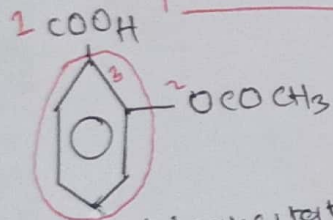 2 COOH
3
2
OCOCH3